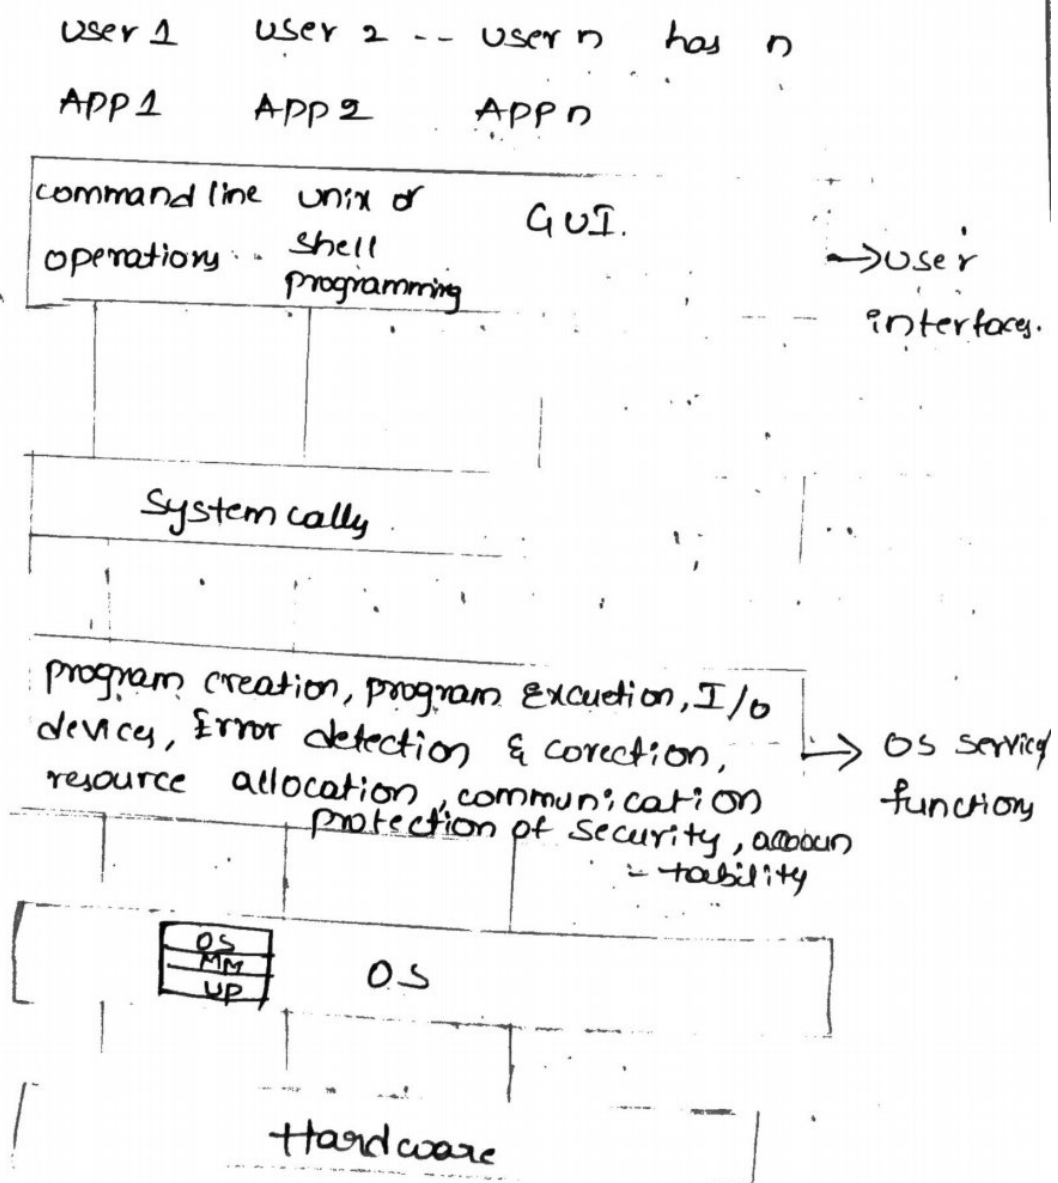 user 1 user 2 -- user n has n
APP 1 APP 2 APP n
command line unix or GUI.
operations shell
programming
→ user
interfaces.
System calls
program creation, program Excuetion, I/o
devices, Error detection & corection,
resource allocation, communication
protection of security, accoun
- tability
→ OS service
functions
OS
MM
UP
OS
Hardware